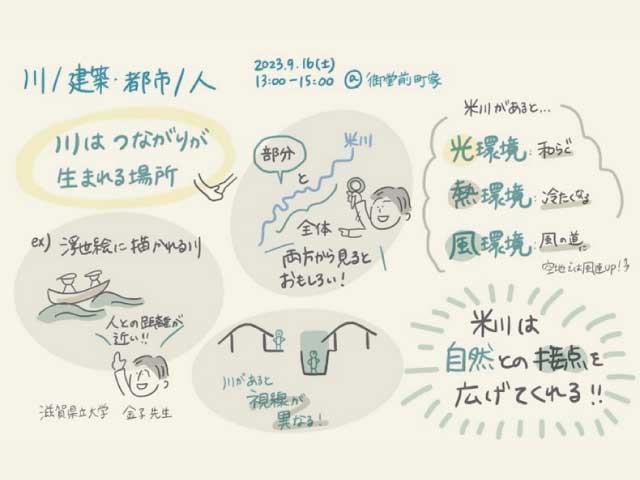 川/建築・都市/人
2023.9.16(土)
13:00-15:00 @御堂前町家
川はつながりが
生まれる場所
部分
と
米川
全体
両方から見ると
おもしろい!
米川があると...
光環境:和らぐ
熱環境:冷たくなる
風環境:風の道に
空地では風速UP!
ex)浮世絵に描かれる川
人との距離が
近い!!
滋賀県立大学 金子先生
川があると
視線が
異なる!
米川は
自然との接点を
広げてくれる!!